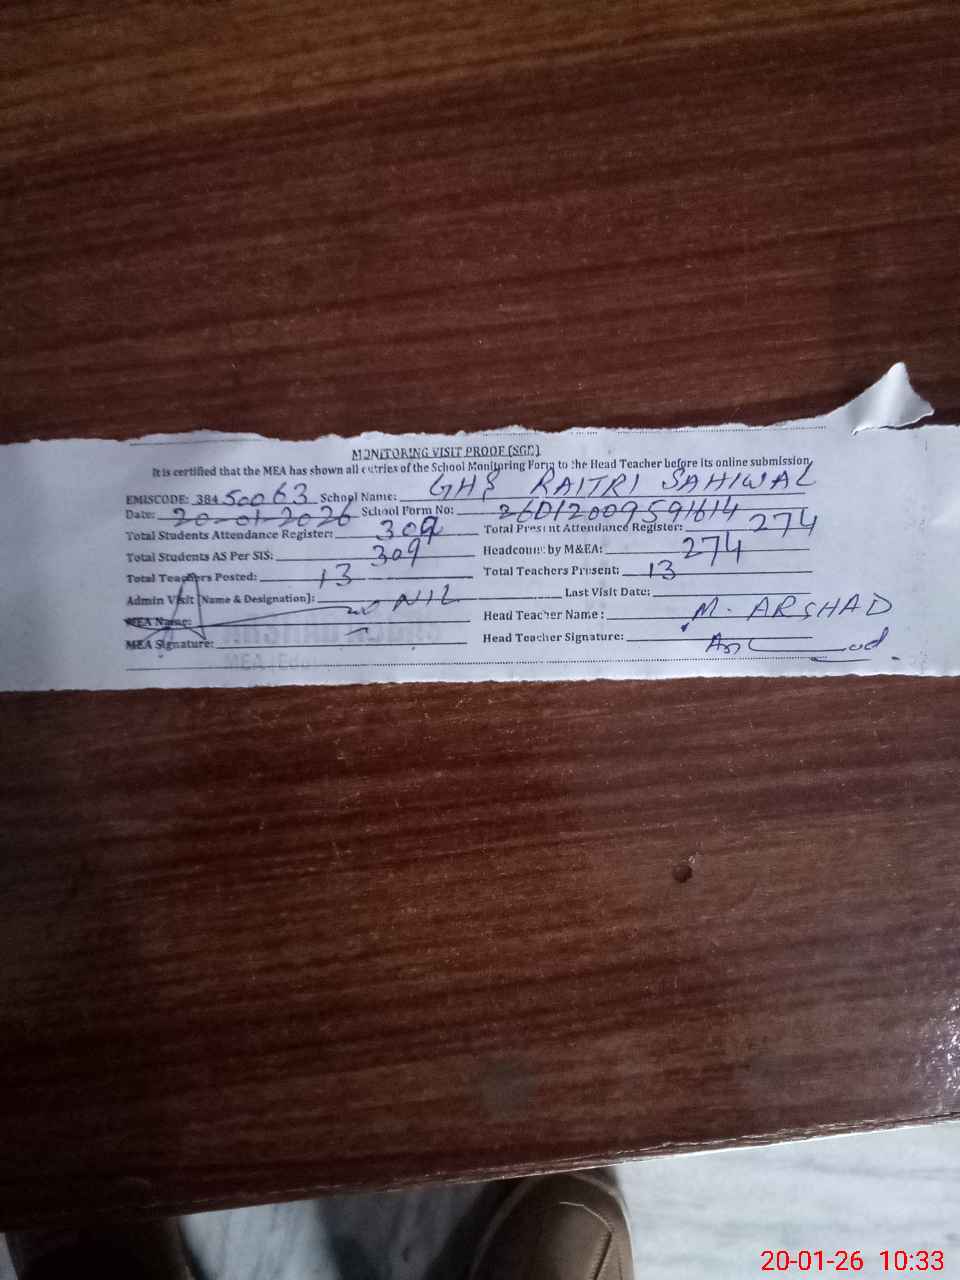 MONITORING VISIT PROOF (SGD)
It is certified that the MEA has shown all entries of the School Monitoring Form to the Head Teacher before its online submission.
EMISCODE: 38450063 School Name: GHS RAITRI SAHIWAL
Date: 20-01-2026 School Form No: 26012009591614
Total Students Attendance Register: 309 Total Present Attendance Register: 274
Total Students AS Per SIS: 309 Headcount by M&EA: 274
Total Teachers Posted: 13 Total Teachers Present: 13
Admin Visit (Name & Designation): NIL Last Visit Date:
MEA Name: Head Teacher Name: M. ARSHAD
MEA Signature: Head Teacher Signature:
20-01-26 10:33